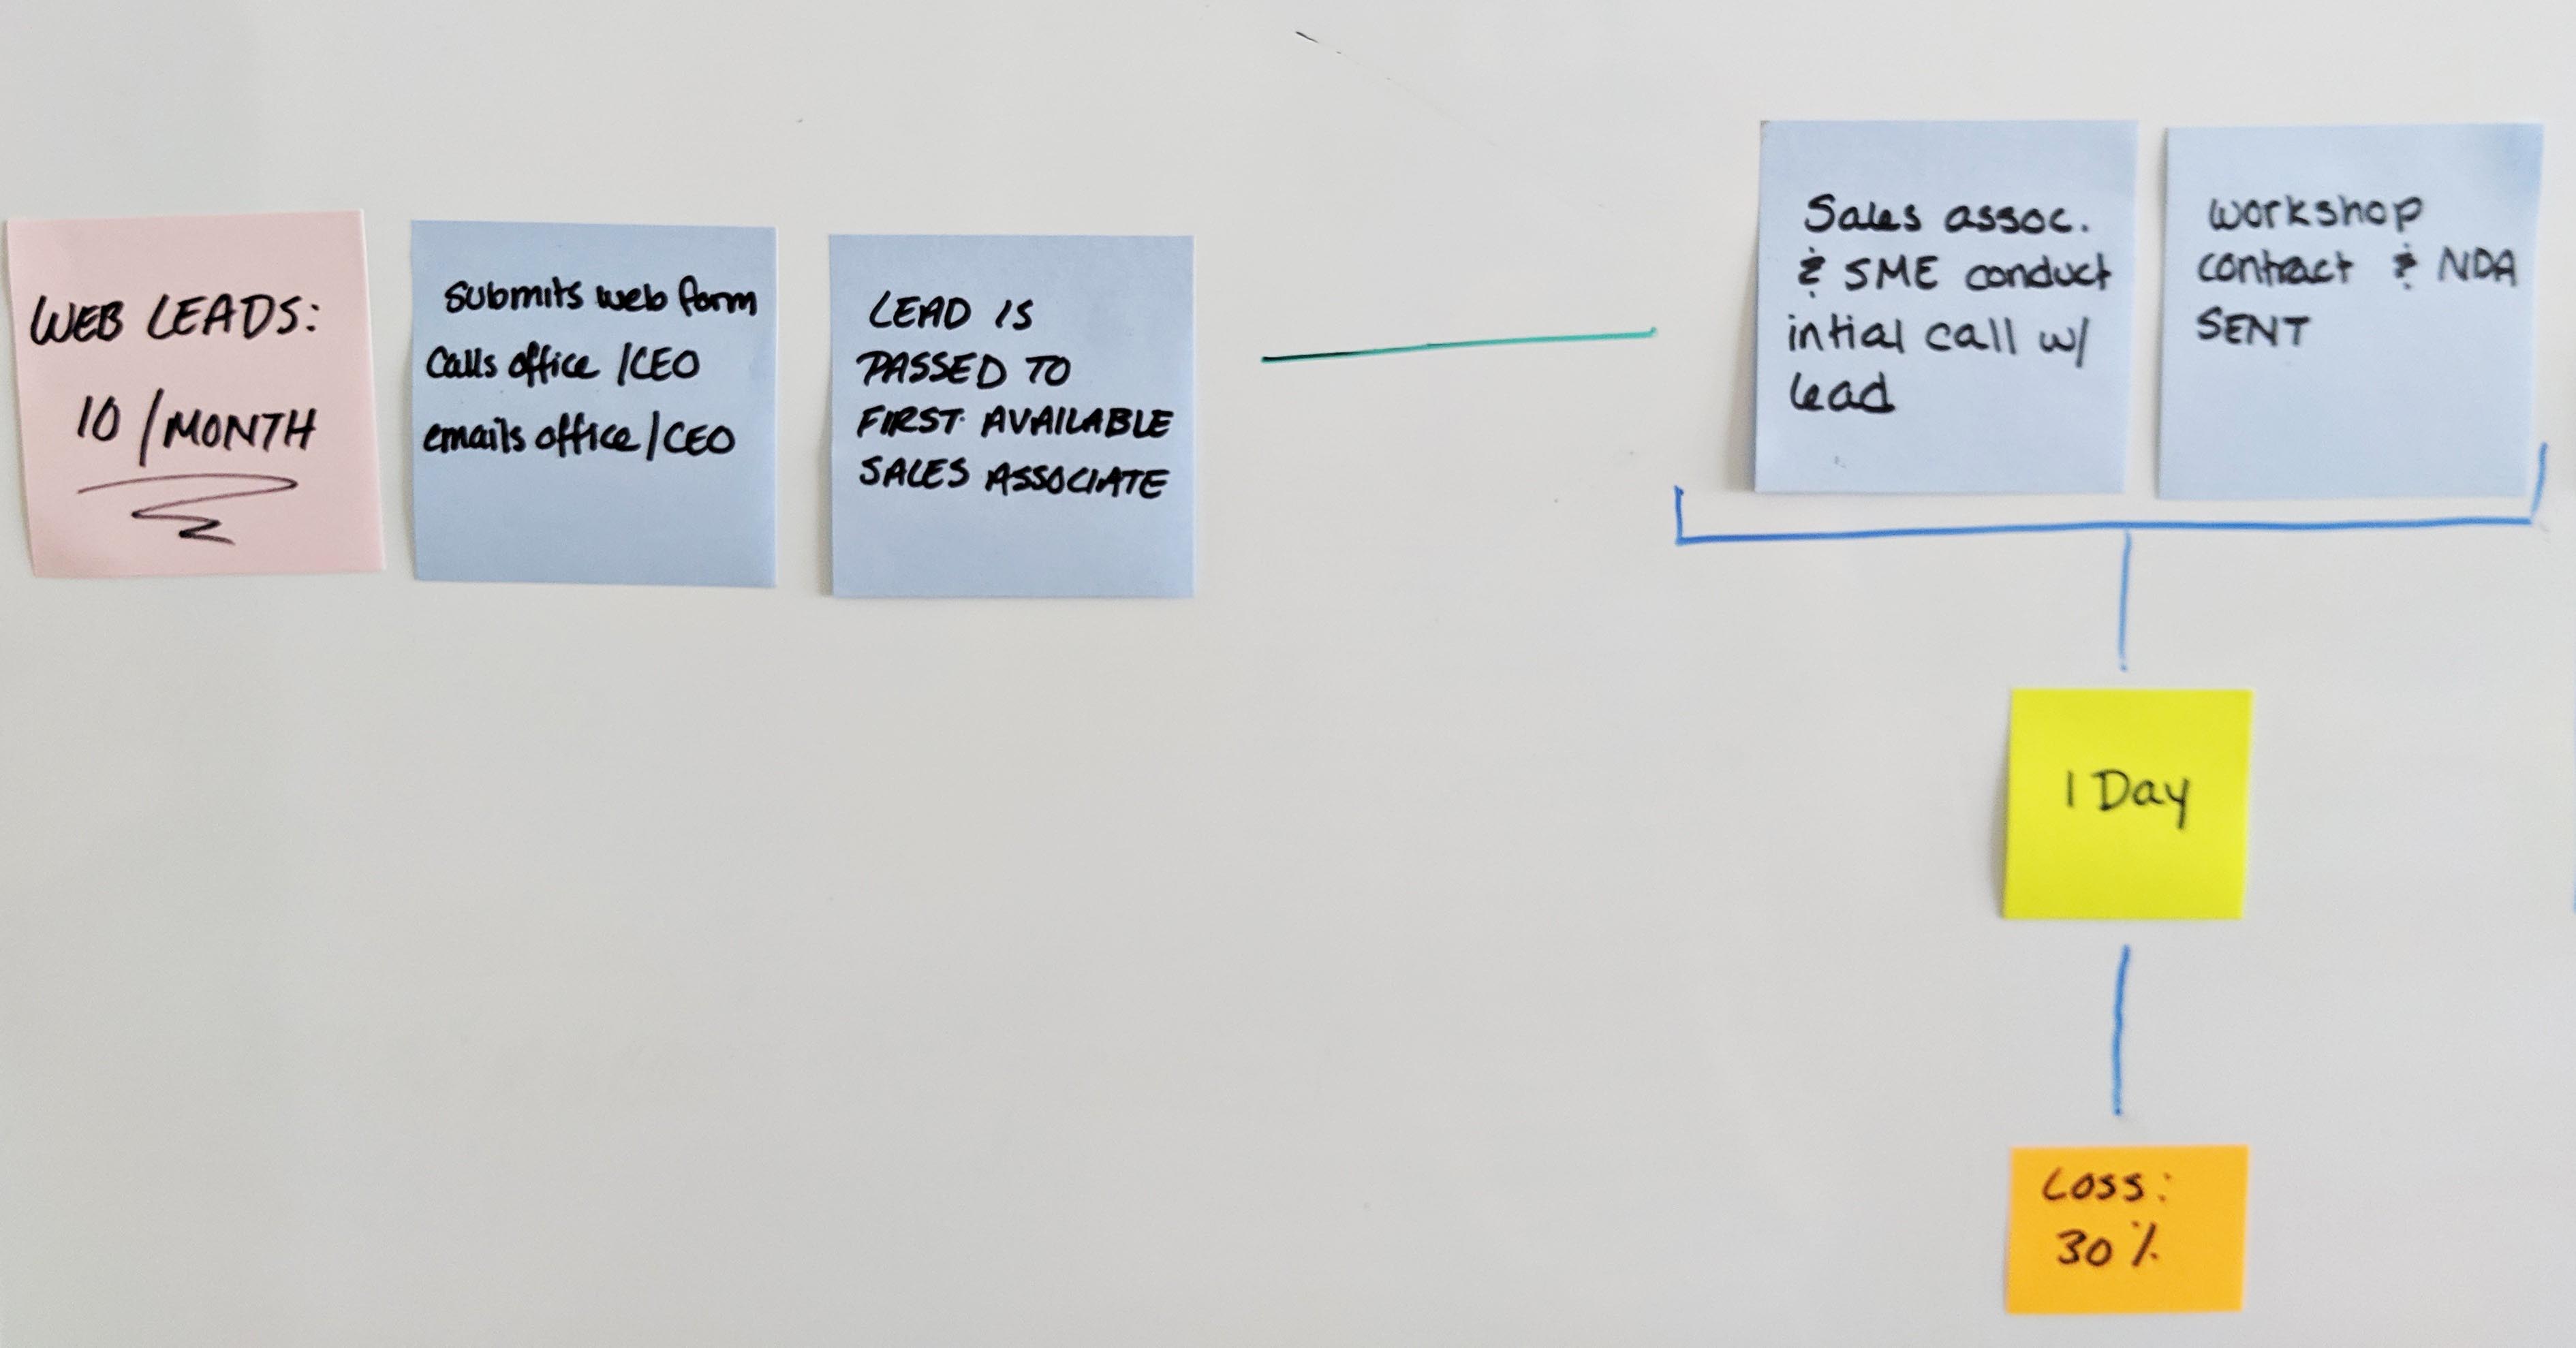 WEB LEADS:
10/MONTH
submits web form
Calls office/CEO
emails office/CEO
LEAD IS
PASSED TO
FIRST AVAILABLE
SALES ASSOCIATE
Sales assoc.
& SME conduct
intial call w/
lead
workshop
contract & NDA
SENT
1 Day
Loss:
30%